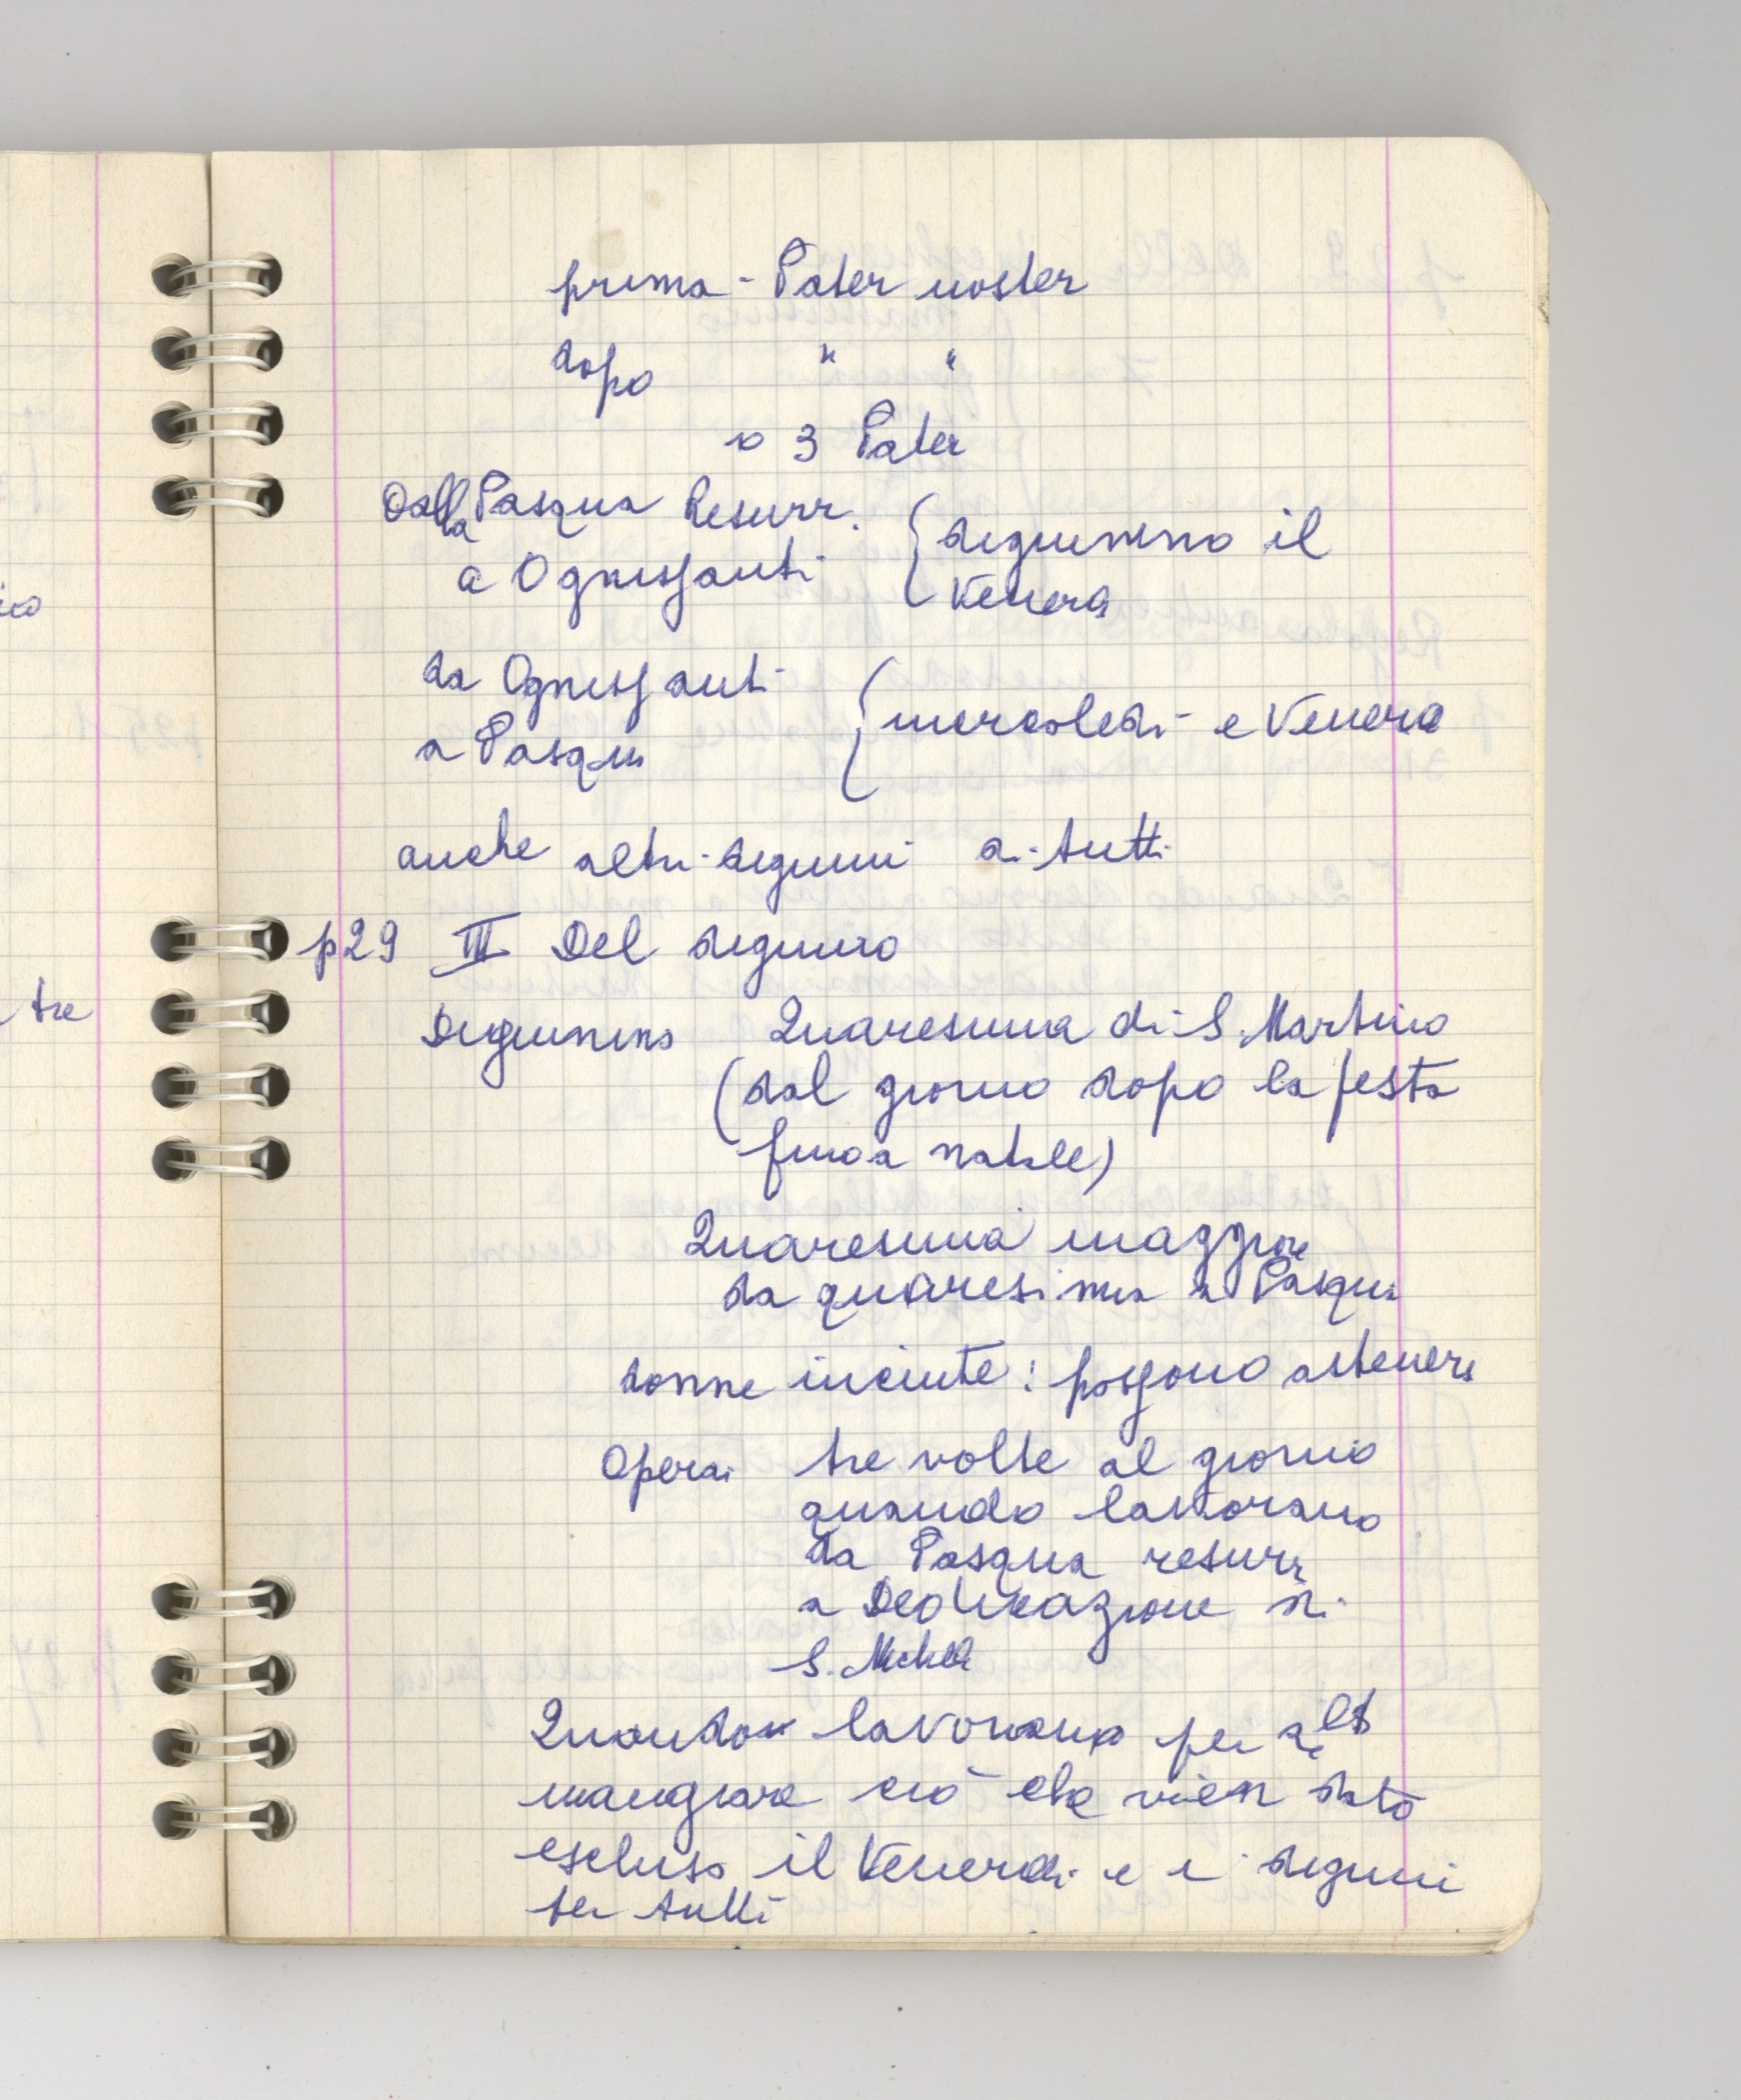 prima - Pater noster
dopo " "
o 3 Pater
Dalla Pasqua Resurr. { digiunino il
a Ognissanti { Venerd
da Ognissanti
a Pasqua { mercoledì e Venerd
anche altri digiuni di tutti
p29 III Del digiuno
Digiunino Quaresima di S. Martino
(dal giorno dopo la festa
fino a natale)
Quaresima maggiore
da quaresima a Pasqua
donne incinte : possono astenersi
Operai tre volte al giorno
quando lavorano
da Pasqua resurr
a Dedicazione di
S. Michele
Quando lavorano per altri
mangiare ciò che vien dato
escluso il Venerdi e i digiuni
per tutti
ico
tre